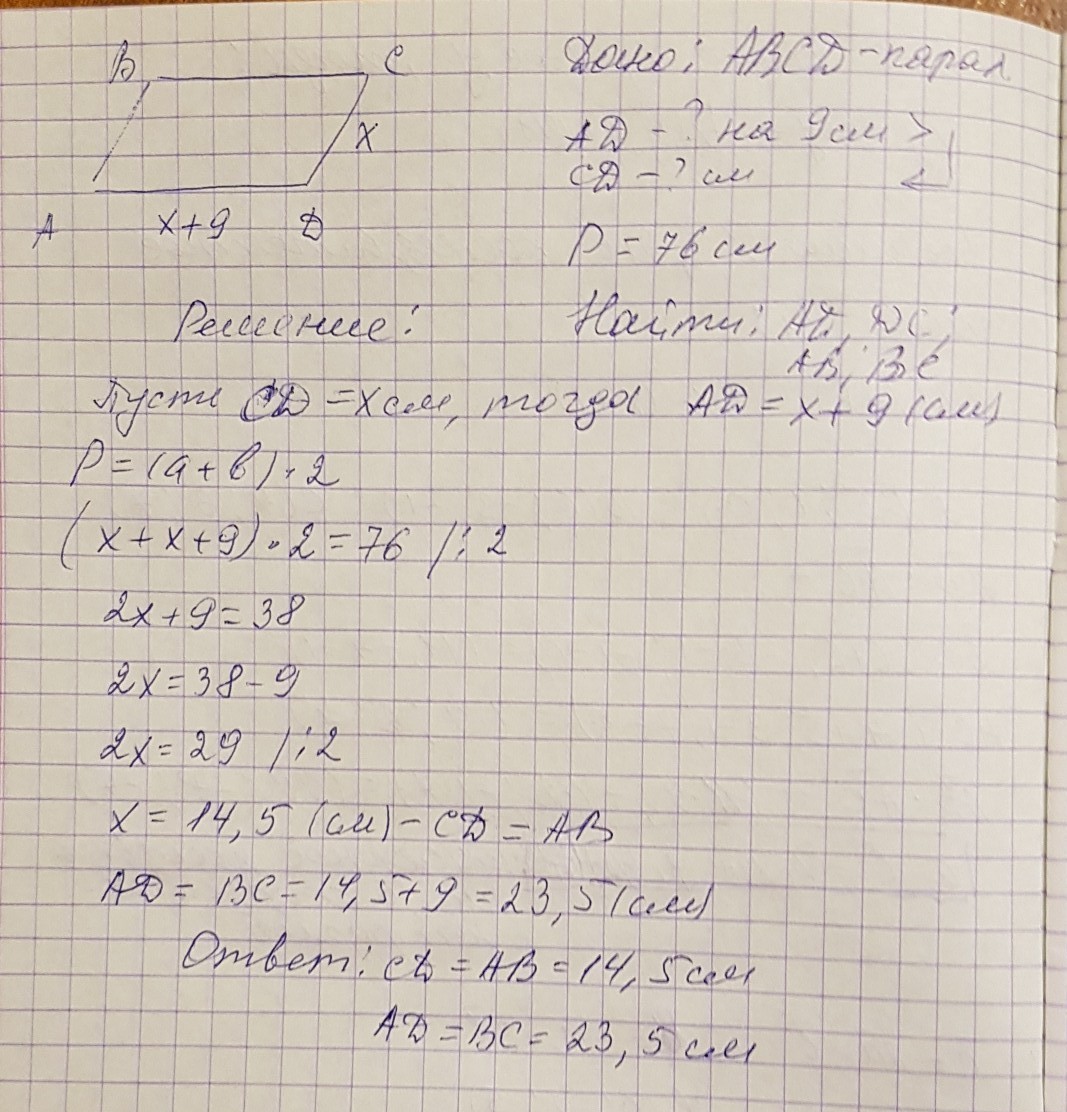 B C Дано: ABCD-парал
X AD - ? на 9см >
CD - ? см
A x+9 D P = 76 см
Решение: Найти: AD, DC,
AB, BC
Пусть CD = x см, тогда AD = x + 9 (см)
P = (a + b) · 2
(x + x + 9) · 2 = 76 /: 2
2x + 9 = 38
2x = 38 - 9
2x = 29 /: 2
x = 14,5 (см) - CD = AB
AD = BC = 14,5 + 9 = 23,5 (см)
Ответ: CD = AB = 14,5 см
AD = BC = 23,5 см